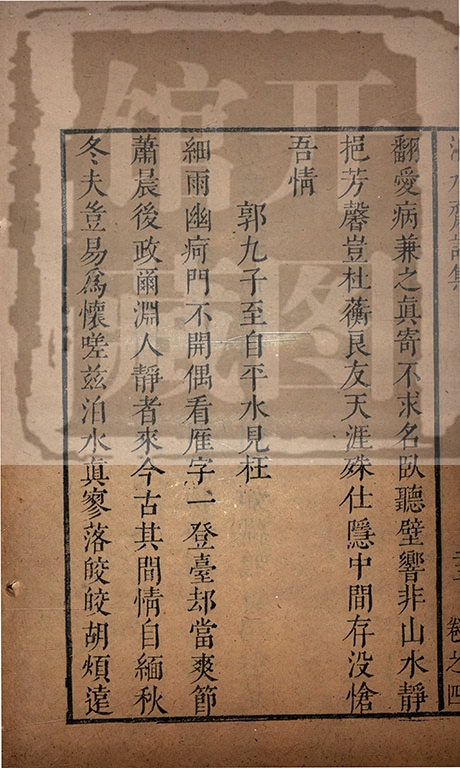 翻愛病兼之真寄不求名臥聽壁響非山水靜
挹芳馨豈杜蘅良友天涯殊仕隱中間存没愴
吾情
郭九子至自平水見枉
細雨幽痾門不開偶看雁字一登臺却當爽節
蕭晨後政爾淵人靜者來今古其間情自緬秋
冬夫豈易爲懷嗟兹泊水真寥落皎皎胡煩遠
卷之四